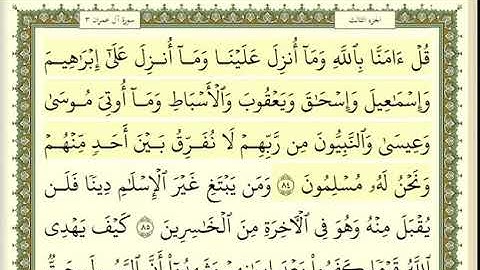 الجزء الثالث
سورة آل عمران ٣
قُلْ ءَامَنَّا بِاللَّهِ وَمَآ أُنزِلَ عَلَيْنَا وَمَآ أُنزِلَ عَلَىٰٓ إِبْرَٰهِيمَ
وَإِسْمَٰعِيلَ وَإِسْحَٰقَ وَيَعْقُوبَ وَالْأَسْبَاطِ وَمَآ أُوتِيَ مُوسَىٰ
وَعِيسَىٰ وَالنَّبِيُّونَ مِن رَّبِّهِمْ لَا نُفَرِّقُ بَيْنَ أَحَدٍ مِّنْهُمْ
وَنَحْنُ لَهُۥ مُسْلِمُونَ ٨٤ وَمَن يَبْتَغِ غَيْرَ الْإِسْلَٰمِ دِينًا فَلَن
يُقْبَلَ مِنْهُ وَهُوَ فِي الْآخِرَةِ مِنَ الْخَٰسِرِينَ ٨٥ كَيْفَ يَهْدِي
اللَّهُ قَوْمًا كَفَرُوا۟ بَعْدَ إِيمَٰنِهِمْ وَشَهِدُوٓا۟ أَنَّ الرَّسُولَ حَقٌّ